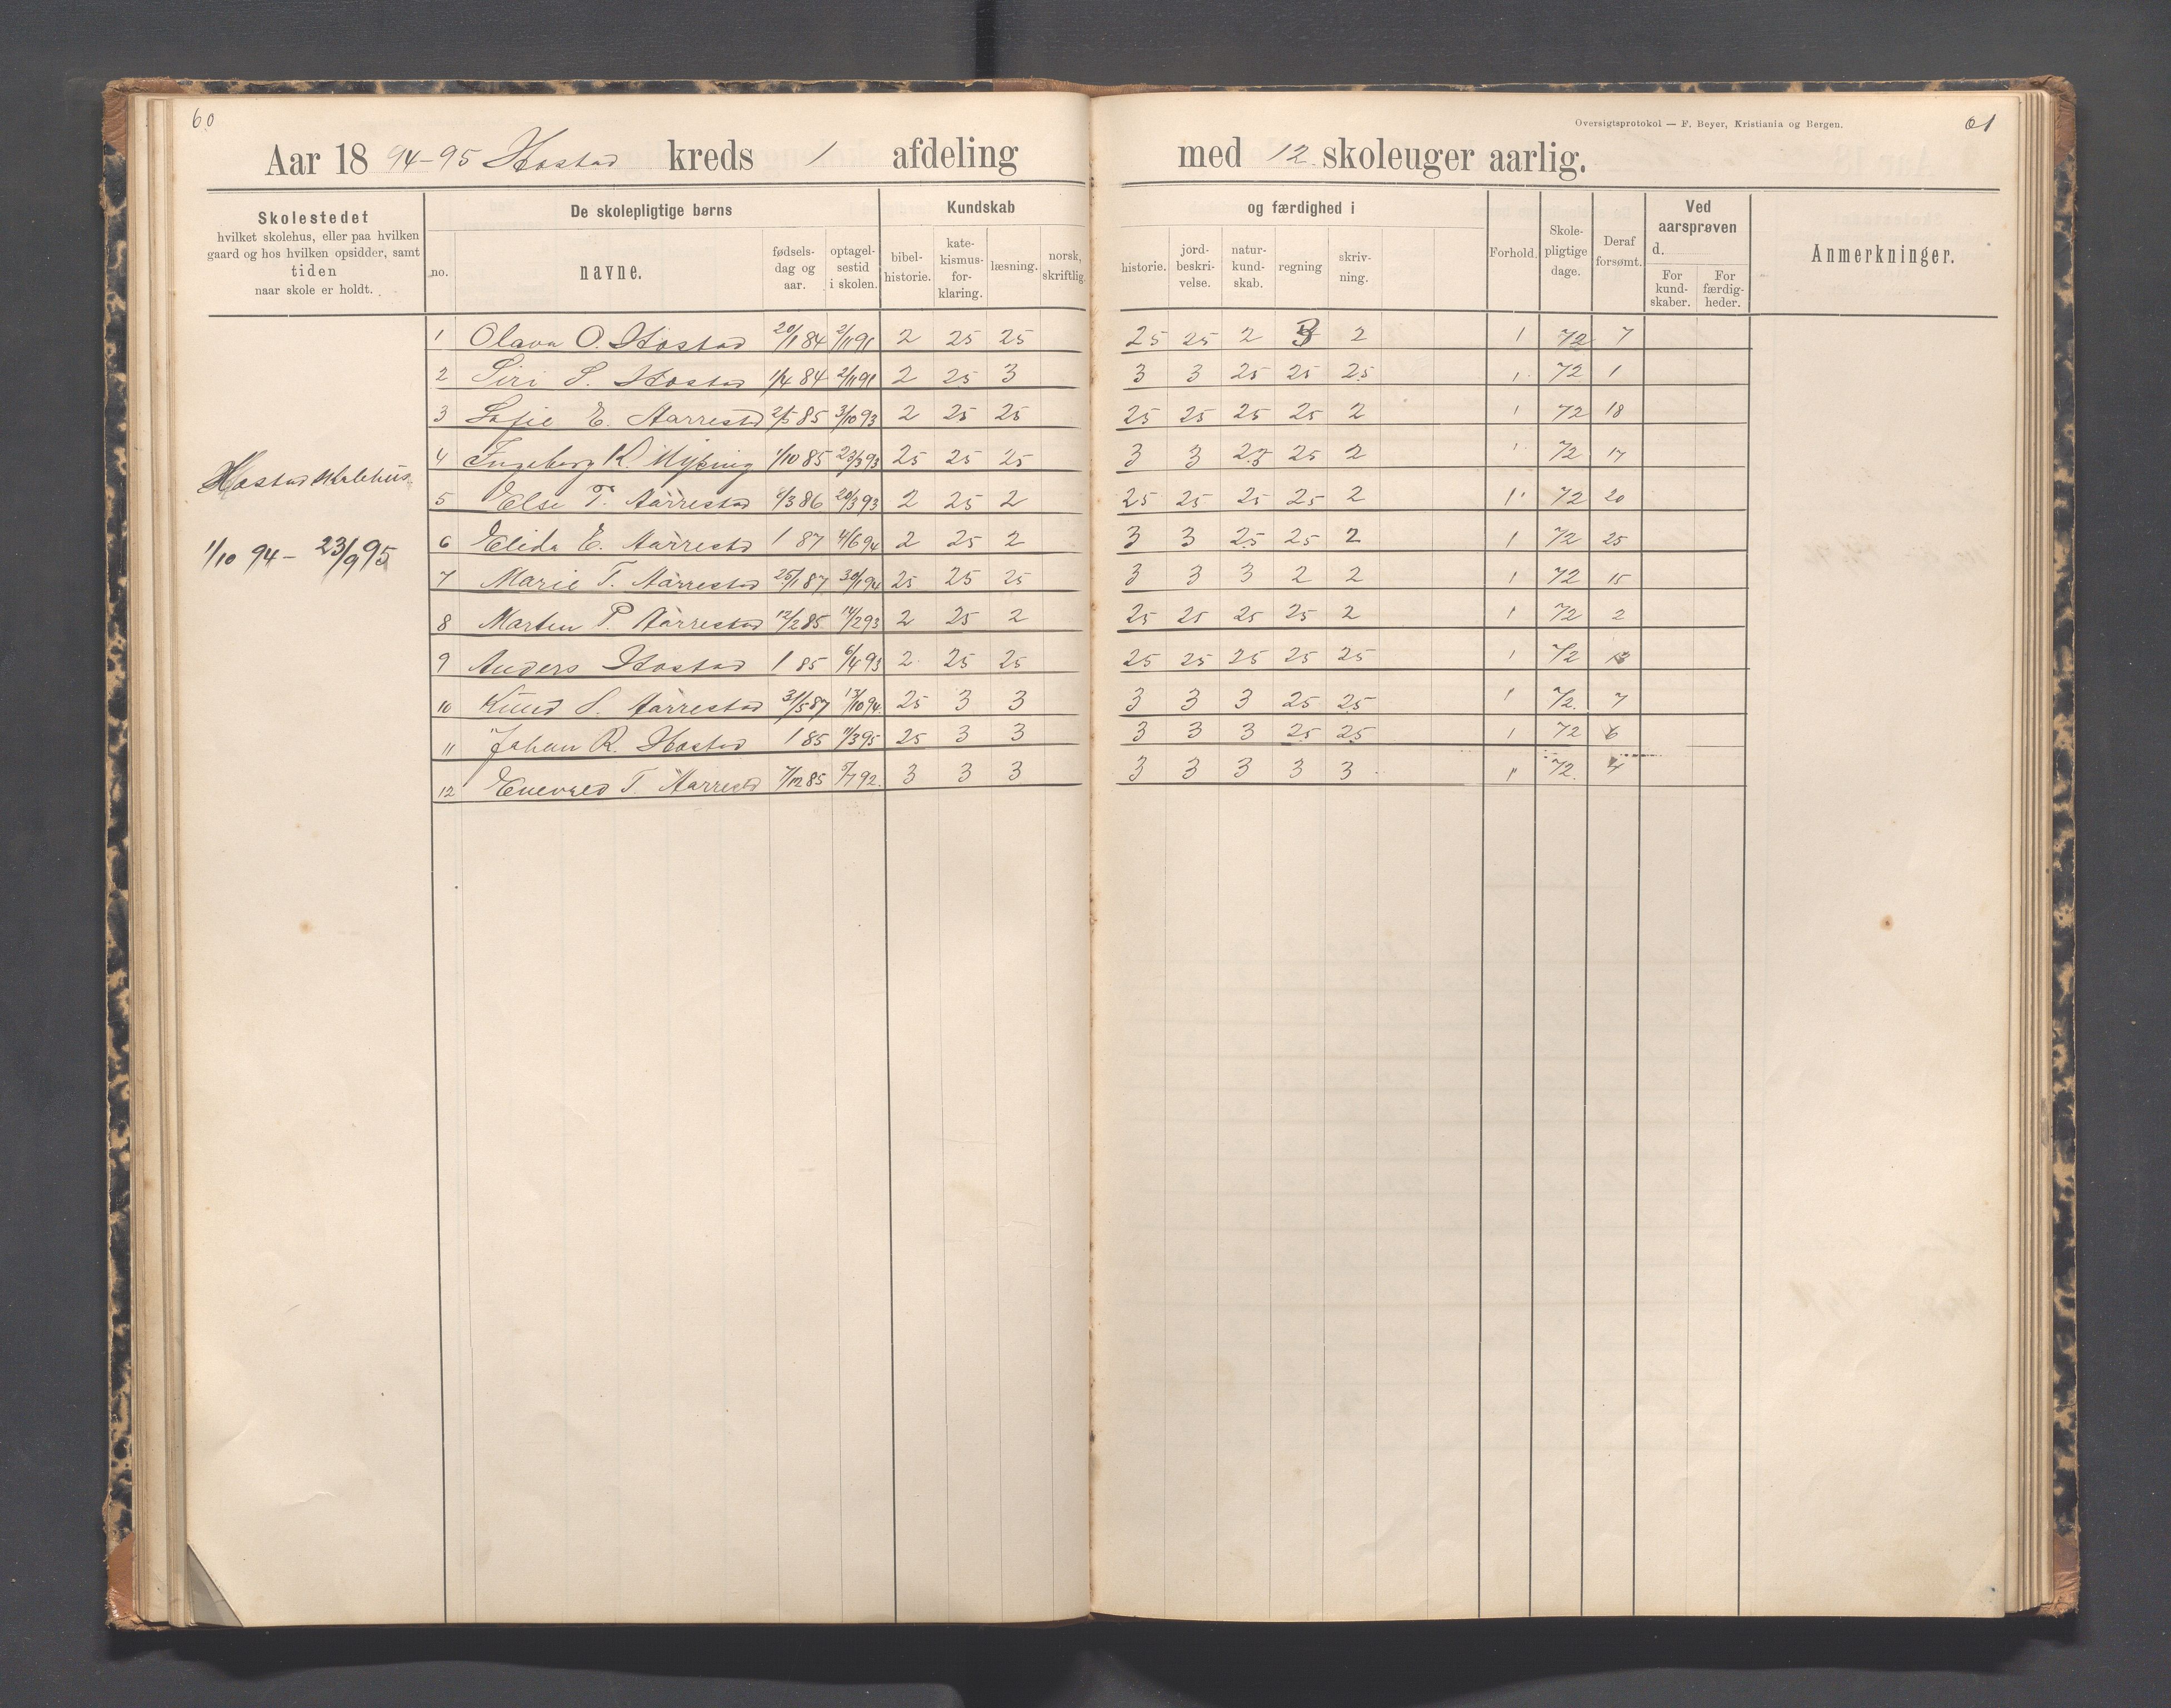 60
Oversigtsprotokol — F. Beyer, Kristiania og Bergen.
61
Aar 18 94-95 Hostad kreds 1 afdeling med 12 skoleuger aarlig.
Skolestedet
hvilket skolehus, eller paa hvilken
gaard og hos hvilken opsidder, samt
tiden
naar skole er holdt.
De skolepligtige børns
no.
navne.
fødsels-
dag og
aar.
optagel-
sestid
i skolen.
Kundskab og færdighed i
bibel-
historie.
kate-
kismus-
for-
klaring.
læsning.
norsk,
skriftlig.
historie.
jord-
beskri-
velse.
natur-
kund-
skab.
regning
skriv-
ning.
Forhold.
Skole-
pligtige
dage.
Deraf
forsømt.
Ved
aarsprøven
d.
For
kund-
skaber.
For
færdig-
heder.
Anmerkninger.
Hostad skolehus
1/10 94 - 23/9 95
1 Olava O. Hostad 20/1 84 2/11 91 2 25 25 25 25 2 3 2 1 72 7
2 Siri S. Hostad 1/4 84 2/11 91 2 25 3 3 3 25 25 25 1 72 1
3 Sofie E. Aarrestad 2/5 85 3/10 93 2 25 25 25 25 25 25 2 1 72 18
4 Ingeborg K. 1/10 85 23/3 93 25 25 25 3 3 25 25 2 1 72 17
5 Else T. Aarrestad 1/3 86 20/3 93 2 25 2 25 25 25 25 2 1 72 20
6 Elida E. Aarrestd / 87 4/6 94 2 25 2 3 3 25 25 2 1 72 25
7 Marie T. Aarrestad 25/1 87 30/1 94 25 25 25 3 3 3 2 2 1 72 15
8 Marten P. Aarrestad 12/2 85 14/2 93 2 25 2 25 25 25 25 2 1 72 2
9 Anders Hostad / 85 6/4 93 2 25 25 25 25 25 25 25 1 72
10 Knud S. Aarrestad 31/5 87 13/10 94. 25 3 3 3 3 3 25 25 1 72. 7
11 Johan R. Hostad / 85 11/3 95 25 3 3 3 3 3 25 25 1 72 6
12 Enevald T. Aarrestd 7/12 85 5/7 92. 3 3 3 3 3 3 3 3 1 72. 4